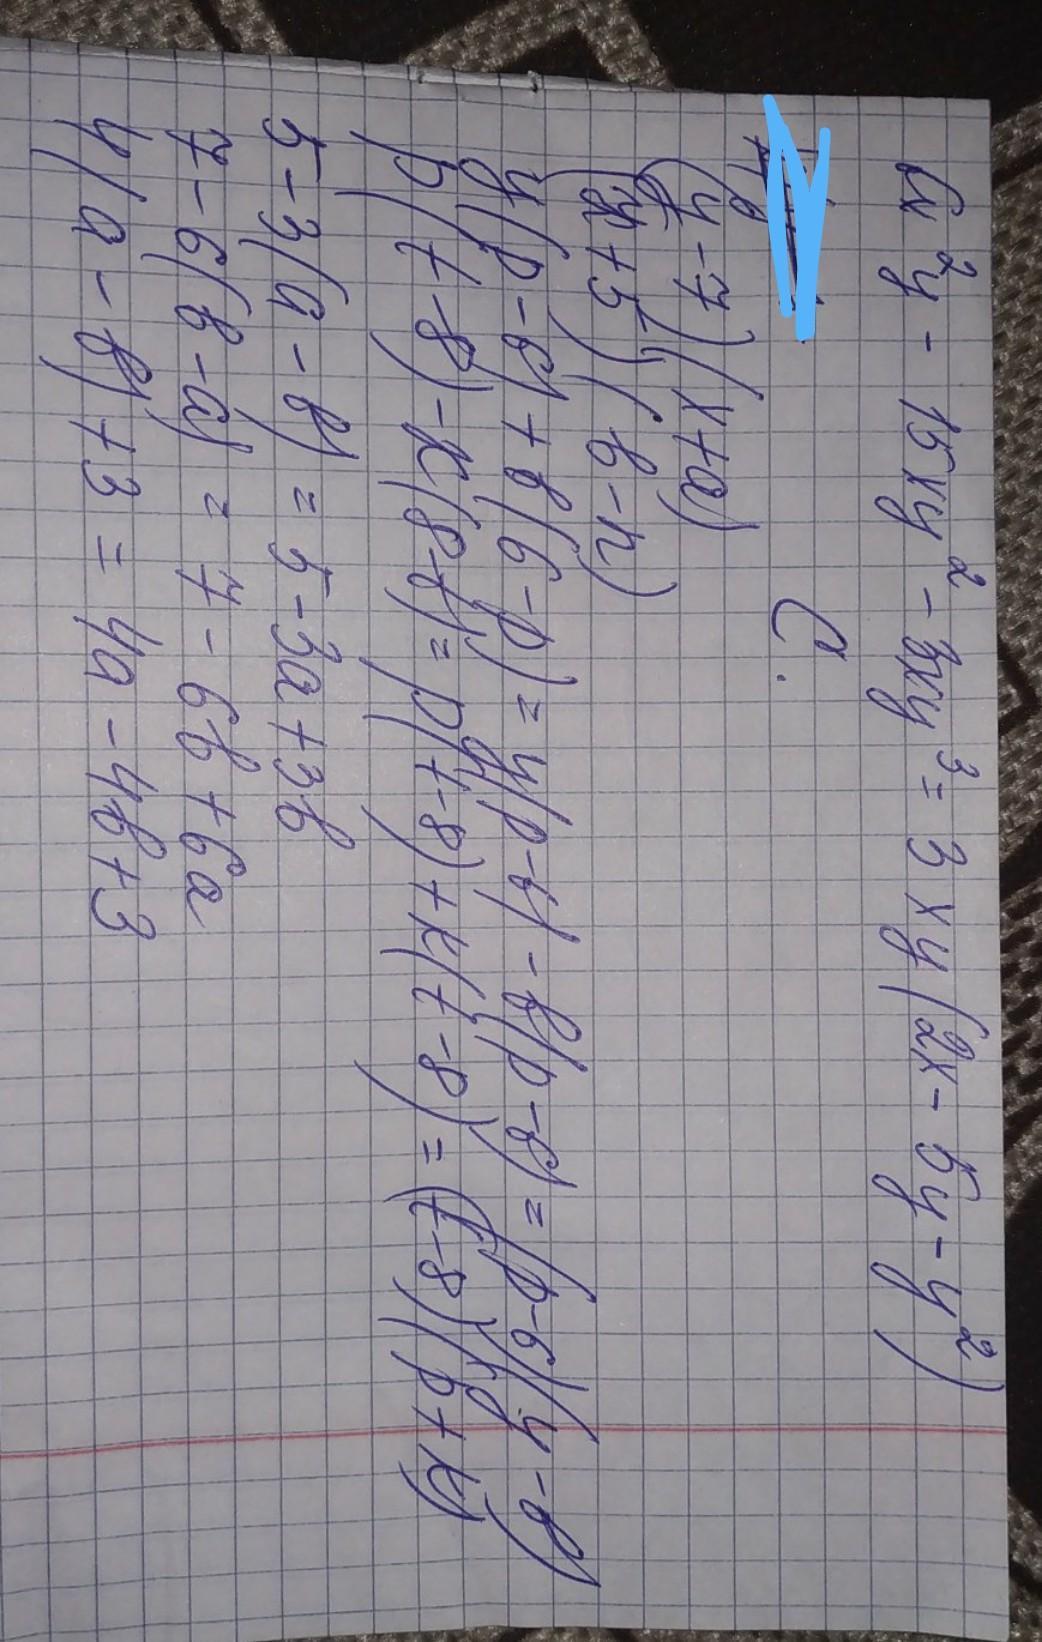 6x²y - 15xy² - 3xy³ = 3xy(2x - 5y - y²)
С.
(y - 7)(x + a)
+ 5)(b - n)
y(p - 6) + b(6 - p) = y(p - 6) - b(p - 6) = (p - 6)(y - b)
p(t - 8) - k(8 - t) = p(t - 8) + k(t - 8) = (t - 8)(p + k)
5 - 3(a - b) = 5 - 3a + 3b
7 - 6(b - a) = 7 - 6b + 6a
4(a - b) + 3 = 4a - 4b + 3